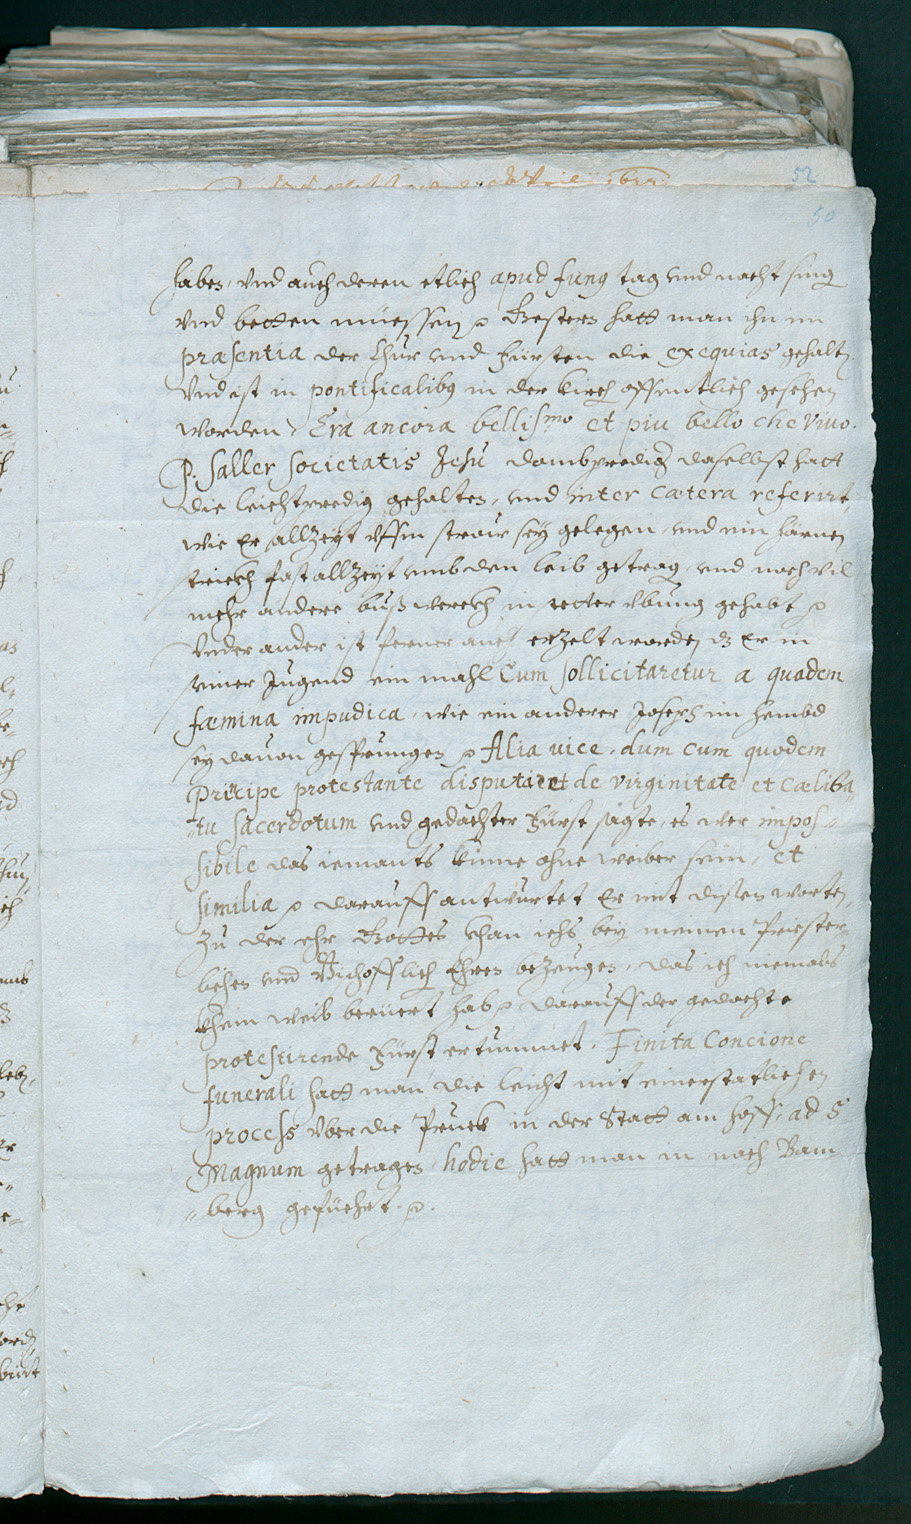 52
50
haben, vnd auch deren etlich apud funus tag vnd nacht sing
vnd betten müessen ꝛc Gestern hatt man ihn im
præsentia der Chur vnd Fürsten die exequias gehalten
Vnd ist in pontificalibus in der kirch offentlich gesehen
worden, Era ancora bellissmo et piu bello che viuo.
P. Saller Societatis Jesu dombpredig daselbst hatt
die leichtpredig gehalten, vnd inter cætera referirt,
wie Er allzeyt vffm straw sey gelegen, vnd ein härnen
strickh fast allzeyt vmb den leib getrag, vnd noch vil
mehr andere bußwerckh in steter übung gehabt ꝛc
Vnder ander ist ferner auch erzelt worden dz Er in
seiner Jugend ein mahl Cum sollicitaretur a quadem
fæmina impudica, wie ein anderer Joseph im hembd
sey dauon gesprungen ꝛc Alia vice, dum cum quodem
Principe protestante disputaret de virginitate et cæliba„
„tu sacerdotum vnd gedachter Fürst sagte, es wer impos„
sibile das iemants kinne ohne weiber sein, et
similia ꝛc darauff antwurtet Er mit disen worten,
Zu der ehr Gottes khan ichs bey meinen Priester„
lichen vnd Bischofflich Ehren bezeugen, das ich niemals
khein weib berüert hab ꝛc darauff der gedachte
protestirende Fürst erstummet. Finita Concione
funerali hatt man die leicht mit einer statlichen
process vber die Pruckh in der Statt am hoff, ad S
Magnum getragen, hodie hatt man in nach Bam
„berg gefüehrt. ꝛc.